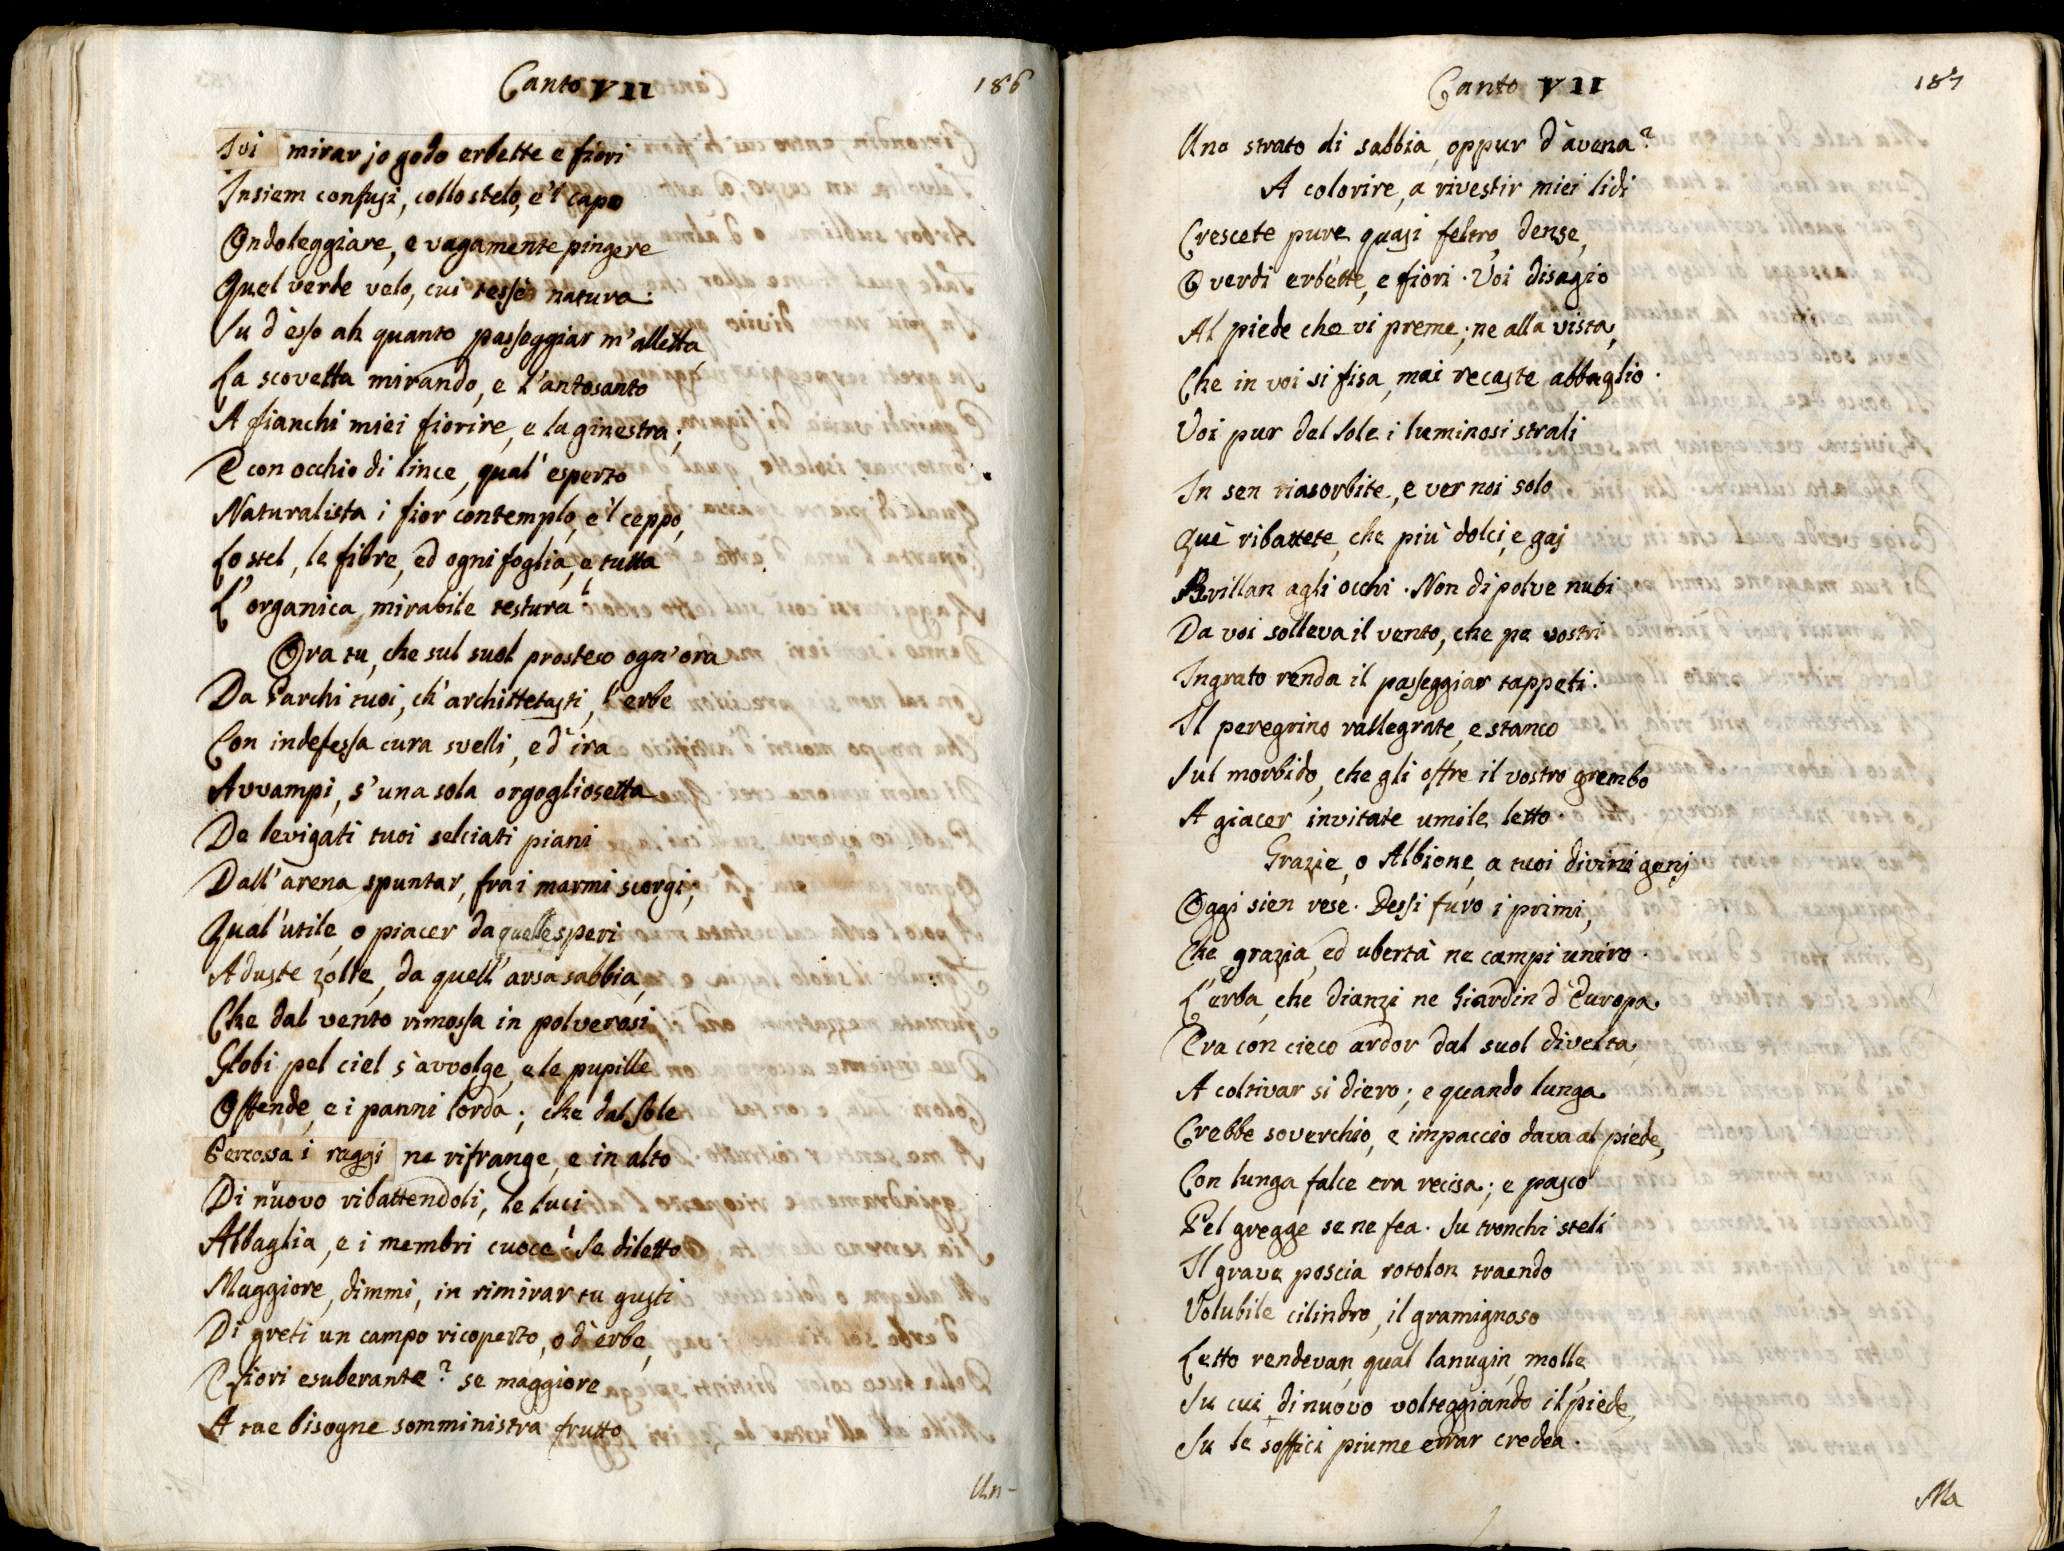 Canto VII
186
Ivi mirar jo godo erbette e fiori
Insiem confusi, collo stelo, e'l capo
Ondoleggiare, e vagamente pingere
Quel verde velo, cui tessè natura:
Su d'esso ah quanto passeggiar m'alletta,
La scovetta mirando, e l'antosanto
A fianchi miei fiorire, e la ginestra;
E con occhio di lince, qual' esperto
Naturalista i fior contemplo, e'l ceppo,
Lo stel, le fibre, ed ogni foglia, e tutta
L'organica mirabile testura!
Ora tu, che sul suol prosteso ogn'ora
Da Parchi tuoi, ch'architettasti, l'erbe
Con indefessa cura svelli, e d'ira
Avvampi, s'una sola orgogliosetta
De levigati tuoi selciati piani
Dall'arena spuntar, fra i marmi scorgi;
Qual'utile, o piacer da quelle speri
Aduste zolle, da quell'arsa sabbia,
Che dal vento rimossa in polverosi
Globi pel ciel s'avvolge, e le pupille
Offende, e i panni lorda; che dal Sole
Percossa i raggi ne rifrange, e in alto
Di nuovo ribattendoli, le luci
Abbaglia, e i membri cuoce! Se diletto
Maggiore, dimmi, in rimirar tu gusti
Di greti un campo ricoperto, o d'erbe,
E fiori esuberante? se maggiore
A tae bisogne somministra frutto
Un-
Canto VII
187
Uno strato di sabbia, oppur d'avena?
A colorire, a rivestir miei lidi
Crescete pure quasi feltro, dense,
O verdi erbette, e fiori. Voi disagio
Al piede che vi preme; ne alla vista,
Che in voi si fisa, mai recaste abbaglio.
Voi pur del Sole i luminosi strali
In sen riasorbite, e ver noi solo
Que' ribattete, che più dolci, e gaj
Brillan agli occhi. Non di polve nubi
Da voi solleva il vento, che pe vostri
Ingrato renda il passeggiar tappeti.
Il peregrino rallegrate, e stanco
Sul morbido, che gli offre il vostro grembo
A giacer invitate umile letto.
Grazie, o Albione, a tuoi divini genj
Oggi sien rese. Dessi furo i primi,
Che grazia, ed ubertà ne campi uniro.
L'erba, che dianzi ne Giardin d'Europa
Era con cieco ardor dal suol divelta,
A coltivar si diero; e quando lunga
Crebbe soverchio, e impaccio dava al piede,
Con lunga falce era recisa; e pasco
Pel gregge se ne fea. Su tronchi steli
Il grave poscia rotolon traendo
Volubile cilindro, il gramignoso
Letto rendevan qual lanugin molle,
Su cui di nuovo volteggiando il piede,
Su le soffici piume errar credea.
Ma